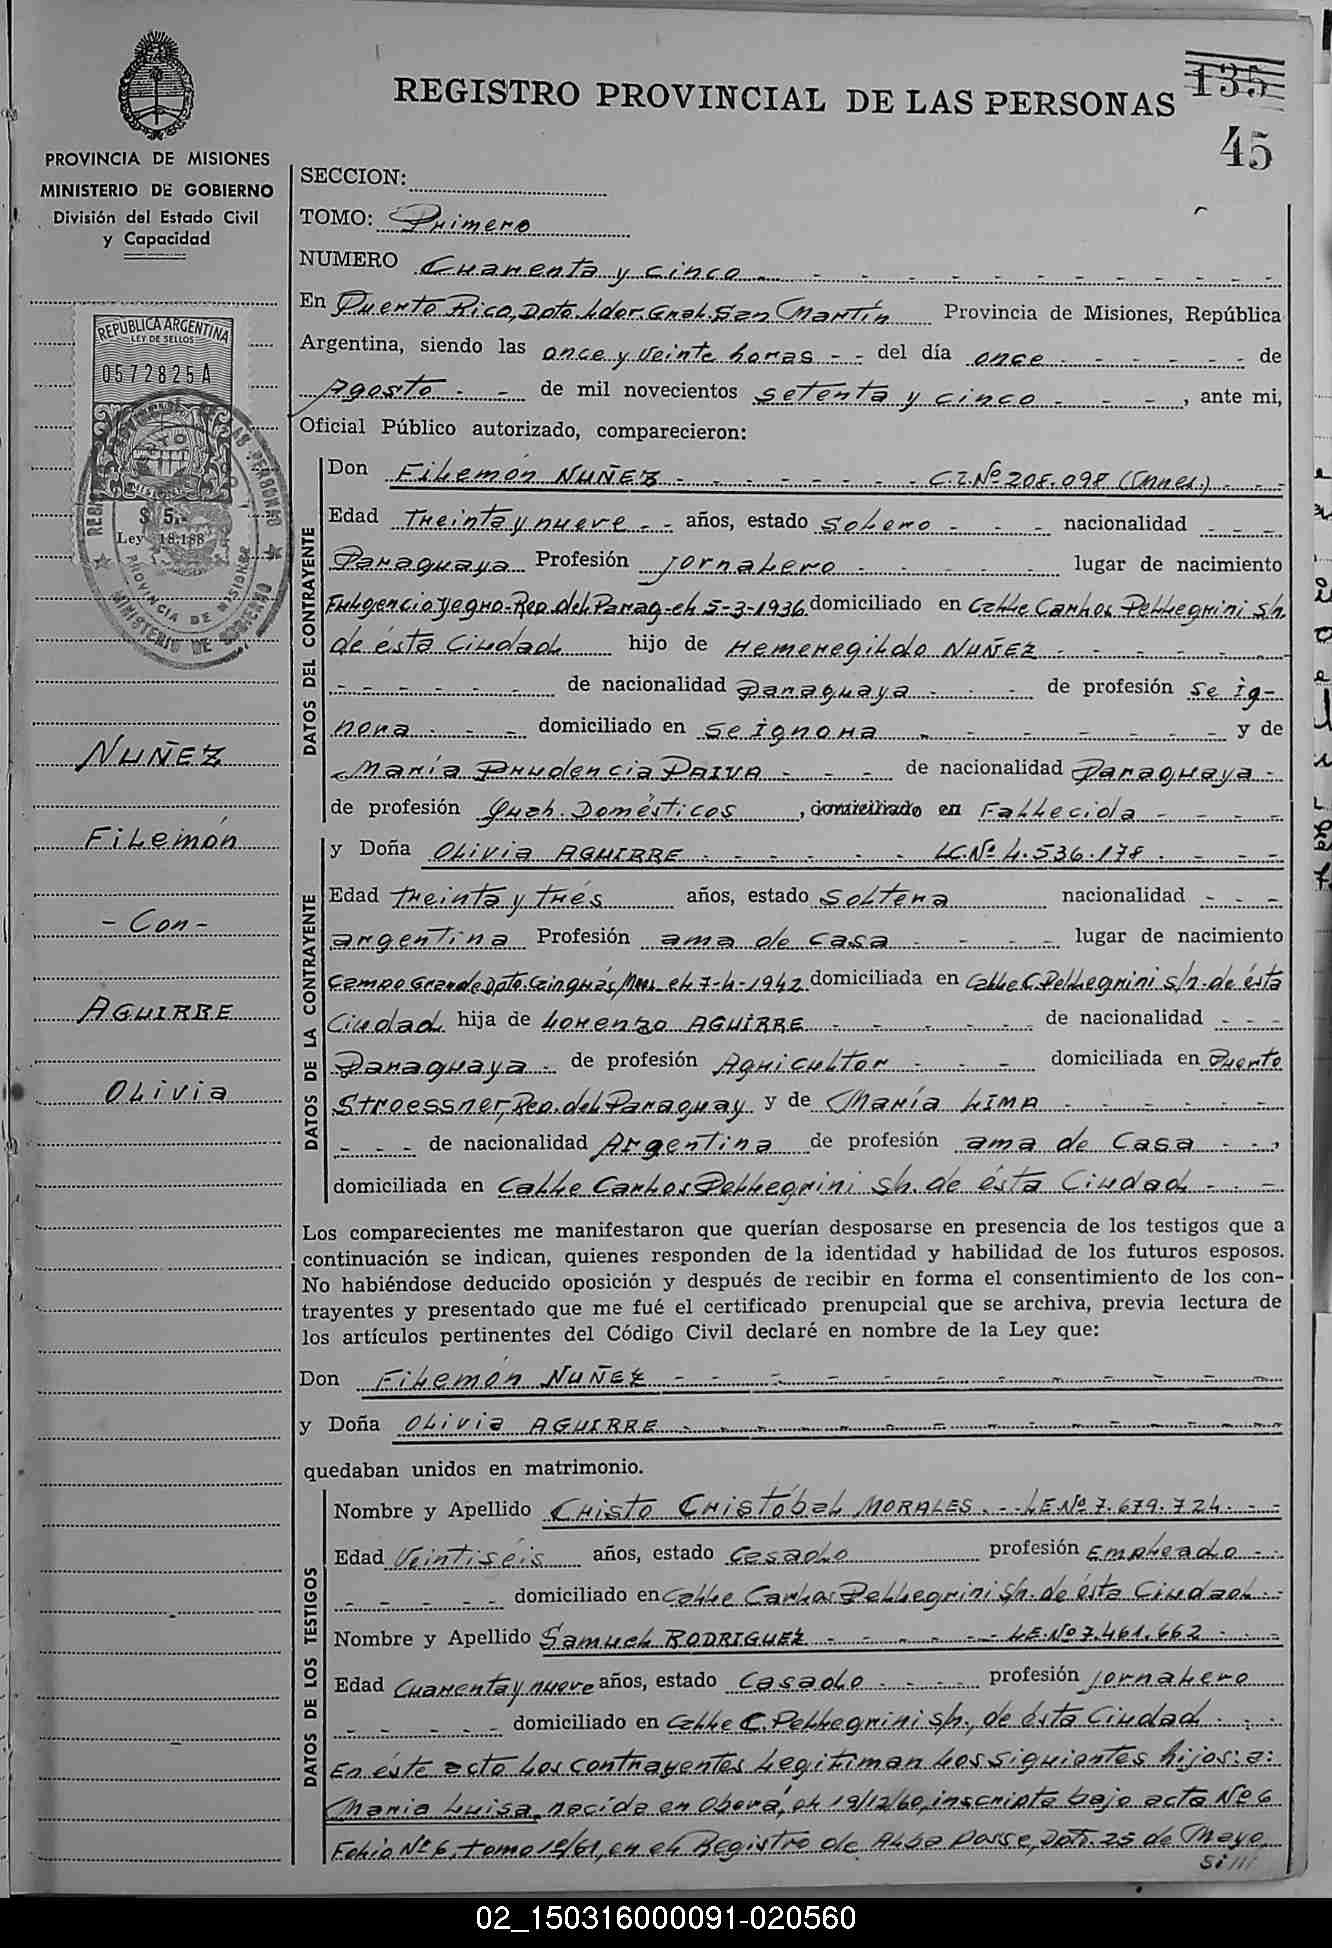 REGISTRO PROVINCIAL DE LAS PERSONAS
135
45
PROVINCIA DE MISIONES
MINISTERIO DE GOBIERNO
División del Estado Civil
y Capacidad
REPUBLICA ARGENTINA
LEY DE SELLOS
0572825A
$ 5,-
Ley 18.188
PROVINCIA DE MISIONES
MINISTERIO DE GOBIERNO
NUÑEZ
Filemón
- Con -
AGUIRRE
Olivia
SECCION:
TOMO: Primero
NUMERO Cuarenta y cinco
En Puerto Rico, Dpto. Ldor. Gral. San Martín Provincia de Misiones, República
Argentina, siendo las once y veinte horas - - del día once - - - - - - de
Agosto - - de mil novecientos setenta y cinco - - - , ante mi,
Oficial Público autorizado, comparecieron:
DATOS DEL CONTRAYENTE
Don Filemón NUÑEZ - - - - - - C.I.Nº 208.098 - -
Edad treinta y nueve - - años, estado soltero - - - nacionalidad - - -
Paraguaya Profesión jornalero - - - - - lugar de nacimiento
Fulgencio Yegro-Rep. del Parag-el 5-3-1936 domiciliado en Calle Carlos Pellegrini s/n.
de ésta Ciudad hijo de Hemeregildo NUÑEZ - - - - - -
- - - - - - de nacionalidad Paraguaya - - - de profesión se ig-
nora - - - domiciliado en se ignora - - - - - - - - y de
María Prudencia PAIVA - - - de nacionalidad Paraguaya -
de profesión Queh. Domésticos , domiciliado en Fallecida - - - -
DATOS DE LA CONTRAYENTE
y Doña Olivia AGUIRRE - - - - - LC.Nº 4.536.178 - - - -
Edad treinta y trés años, estado soltera nacionalidad - - -
argentina Profesión ama de casa - - - - lugar de nacimiento
Campo Grande Dpto. Cainguás, Mnes. el 7-4-1942 domiciliada en Calle C. Pellegrini s/n. de ésta
Ciudad hija de Lorenzo AGUIRRE - - - - - - de nacionalidad - - -
Paraguaya - de profesión Agricultor - - - domiciliada en Puerto
Stroessner, Rep. del Paraguay y de María LIMA - - - - - -
- - - de nacionalidad Argentina de profesión ama de Casa - - ,
domiciliada en Calle Carlos Pellegrini s/n. de ésta Ciudad - - -
Los comparecientes me manifestaron que querían desposarse en presencia de los testigos que a
continuación se indican, quienes responden de la identidad y habilidad de los futuros esposos.
No habiéndose deducido oposición y después de recibir en forma el consentimiento de los con-
trayentes y presentado que me fué el certificado prenupcial que se archiva, previa lectura de
los artículos pertinentes del Código Civil declaré en nombre de la Ley que:
Don Filemón NUÑEZ - - - - - - - - - - -
y Doña Olivia AGUIRRE - - - - - - - - - - -
quedaban unidos en matrimonio.
DATOS DE LOS TESTIGOS
Nombre y Apellido Cristo Cristóbal MORALES. - - LE.Nº 7.679.724 - - -
Edad Veintiséis años, estado Casado profesión Empleado - -
- - - - - domiciliado en Calle Carlos Pellegrini s/n. de ésta Ciudad - -
Nombre y Apellido Samuel RODRIGUEZ - - - - - - LE.Nº 7.461.662 - - -
Edad Cuarenta y nueve años, estado Casado - - - - profesión jornalero
- - - - - domiciliado en Calle C. Pellegrini s/n., de ésta Ciudad - - -
En éste acto los contrayentes legitiman los siguientes hijos: a:
María Luisa, nacida en Oberá, el 19/12/60, inscripta bajo acta Nº 6
Folio Nº 6, tomo 1º/61, en el Registro de Alba Posse, Dpto. 25 de Mayo,
si///
02_150316000091-020560